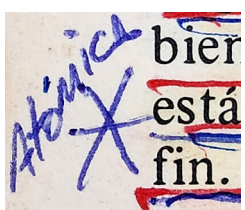 Atómica
bien
está
fin.